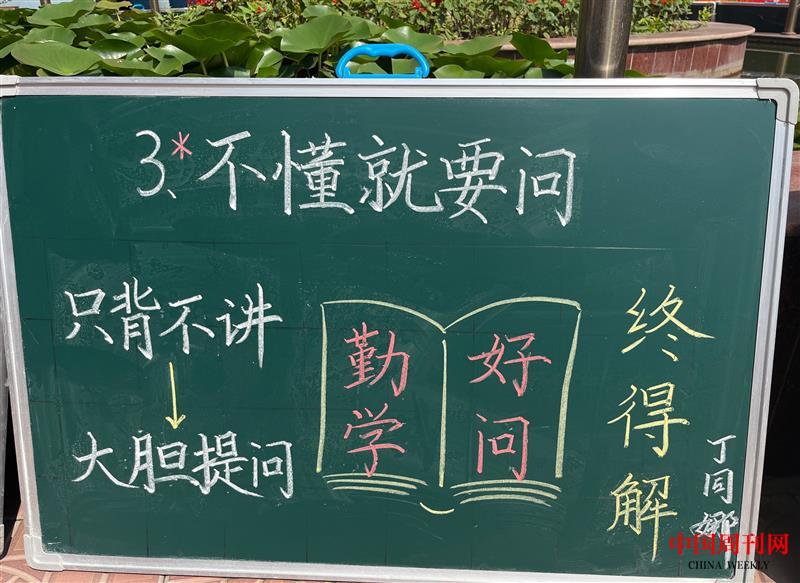 3、*不懂就要问
只背不讲
大胆提问
勤学
好问
终得解
丁同娜
中国周刊网
CHINA WEEKLY